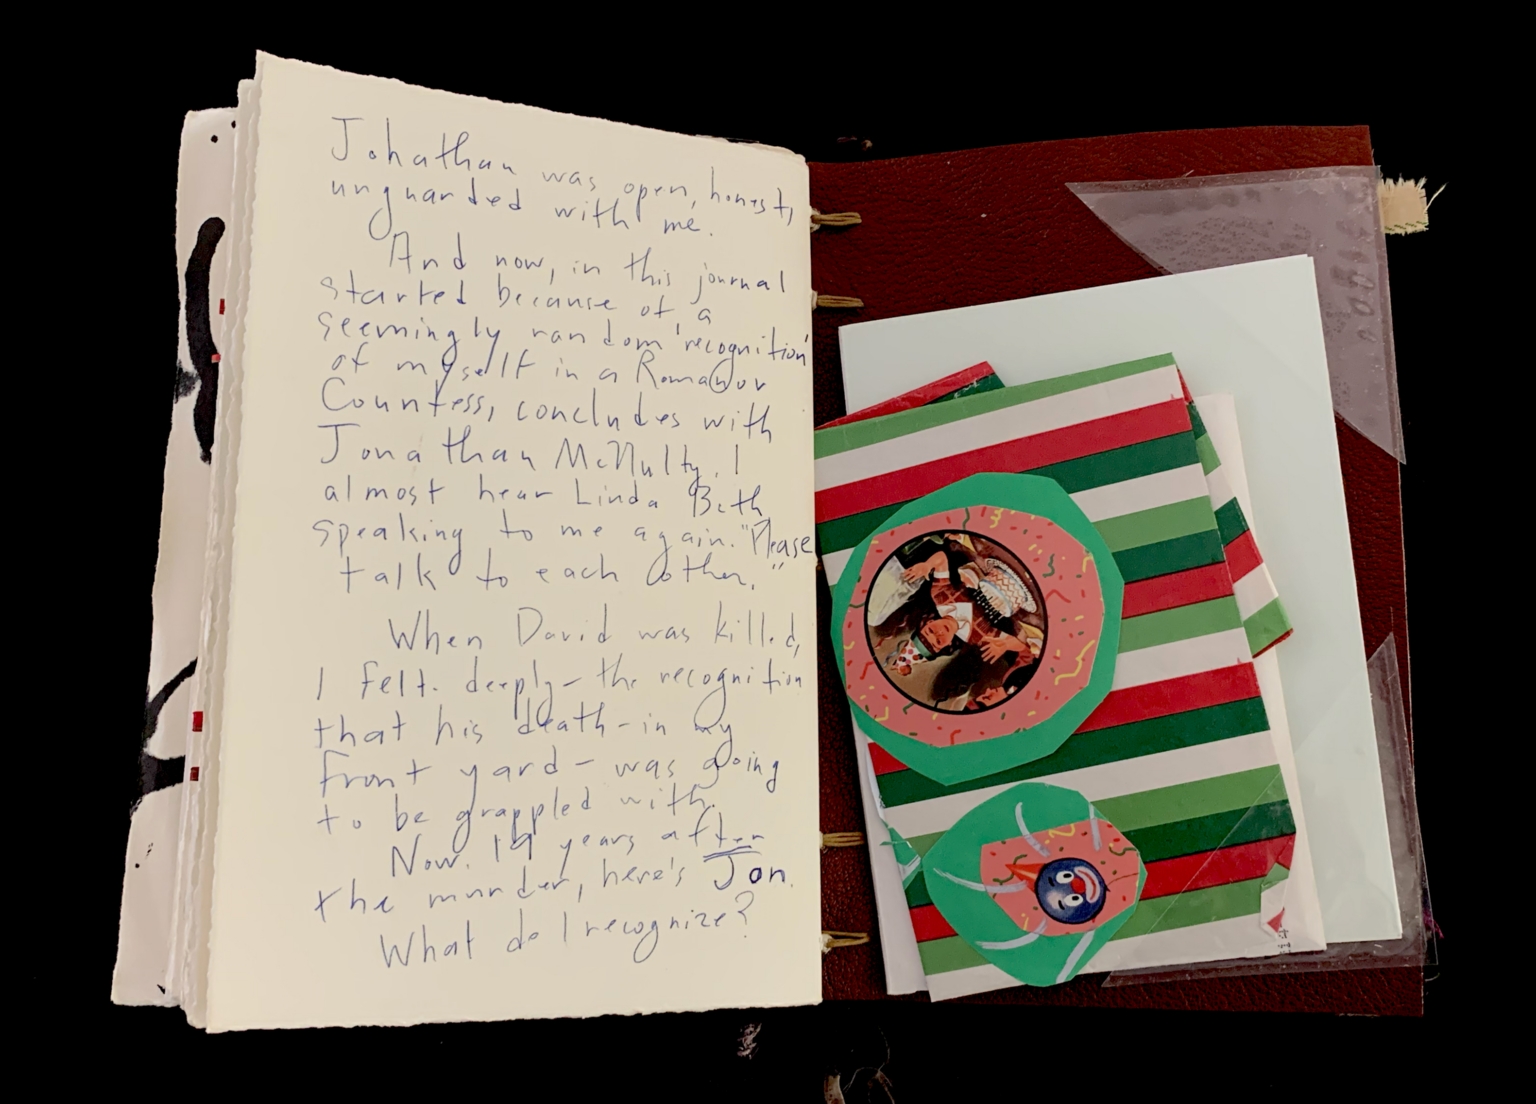 Johathan was open, honest,
unguarded with me.
And now, in this journal
started because of a
seemingly random 'recognition'
of myself in a Romanov
Countess, concludes with
Jonathan McNulty. I
almost hear Linda Beth
speaking to me again. "Please
talk to each other."
When David was killed,
I felt deeply – the recognition
that his death – in my
front yard – was going
to be grappled with.
Now. 19 years after
the murder, here's Jon.
What do I recognize?